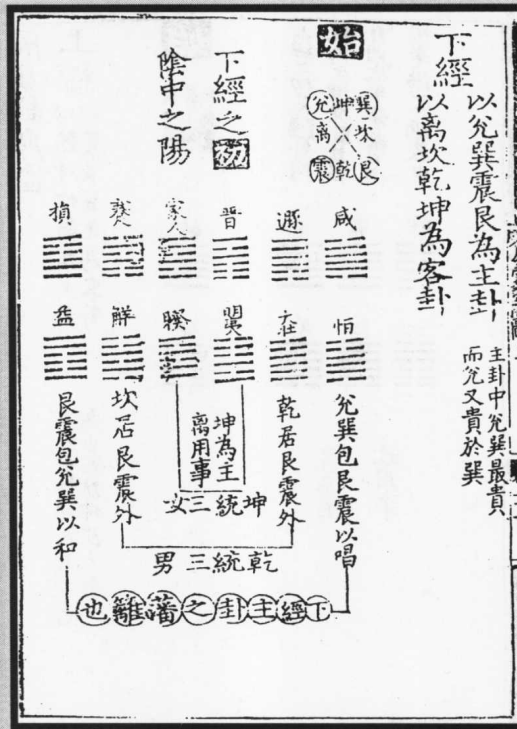 下經
以兊巽震艮為主卦
以离坎乾坤為客卦
主卦中兊巽最貴
而兊又貴於巽
始
巽坤兊
坎离
艮乾震
下經之初
陰中之陽
咸
遯
晋
家人
蹇
損
恒
大壯
明夷
睽
解
益
兊巽包艮震以唱
乾居艮震外
坤為主
离用事
坎居艮震外
艮震包兊巽以和
坤統三女
乾統三男
下經主卦之藩籬也